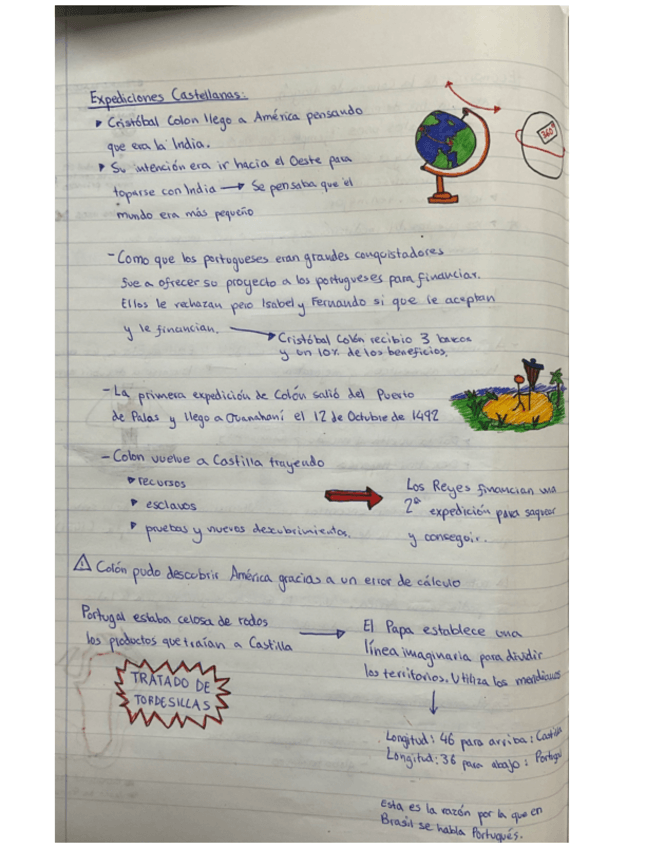 Expediciones Castellanas:
Cristóbal Colon llego a América pensando
que era la India.
Su intención era ir hacia el Oeste para
toparse con India → Se pensaba que el
mundo era más pequeño
360º
- Como que los portugueses eran grandes conquistadores
fue a ofrecer su proyecto a los portugueses para financiar.
Ellos le rechazan pero Isabel y Fernando si que le aceptan
y le financian. → Cristóbal Colón recibio 3 barcos
y un 10% de los beneficios.
- La primera expedición de Colón salió del Puerto
de Palas y llego a Guanahaní el 12 de Octubre de 1492
- Colon vuelve a Castilla trayendo
recursos
esclavos
pruebas y nuevos descubrimientos.
Los Reyes financian una
2ª expedición para saquear
y conseguir.
Colón pudo descubrir América gracias a un error de cálculo
Portugal estaba celosa de todos
los productos que traían a Castilla
TRATADO DE
TORDESILLAS
El Papa establece una
línea imaginaria para dividir
los territorios. Utiliza los meridianos
Longitud: 46 para arriba: Castilla
Longitud: 36 para abajo: Portugal
Esta es la razón por la que en
Brasil se habla Portugués.